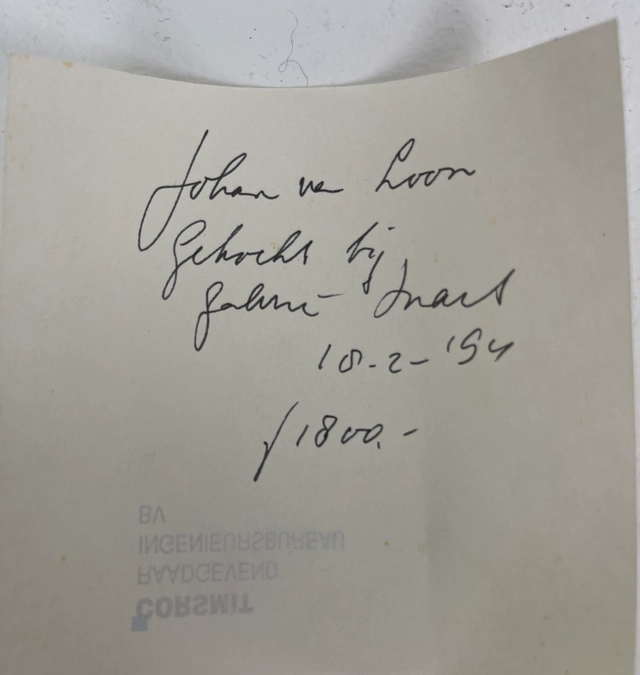 Johan van Loon
Gekocht bij
galerie Inart
18-2-'94
ƒ1800.-
BV
INGENIEURSBUREAU
RAADGEVEND
CORSMIT